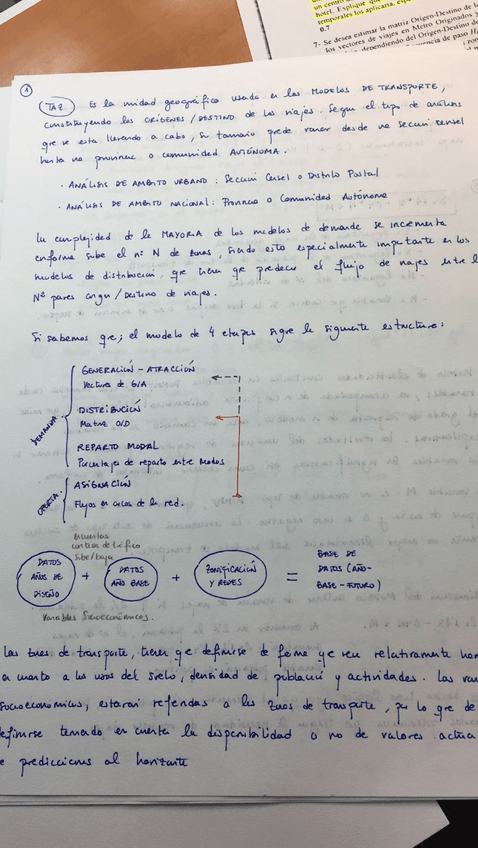 un centro
hotel. Explique que
temporales los aplicaría, esp
0.7
7- Se desea estimar la matriz Origen-Destino de
los vectores de viajes en Metro Originados y
dependiendo del Origen-Destino de
1
TAZ Es la unidad geográfica usada en los MODELOS DE TRANSPORTE,
constituyendo los ORÍGENES/DESTINO de los viajes. Según el tipo de análisis
que se esta llevando a cabo, su tamaño puede variar desde una sección censal
hasta una provincia o comunidad AUTÓNOMA.
· ANÁLISIS DE AMBITO URBANO: Sección Censal o Distrito Postal
· ANÁLISIS DE AMBITO NACIONAL: Provincia o Comunidad Autónoma
La complejidad de la MAYORIA de los modelos de demanda se incrementa
conforme sube el nº N de zonas, siendo esto especialmente importante en los
modelos de distribución, que tienen que predecir el flujo de viajes entre l
N² pares origen/Destino de viajes.
Si sabemos que; el modelo de 4 etapas sigue la siguiente estructura:
DEMANDA
GENERACIÓN - ATRACCIÓN
Vectores de G/A
DISTRIBUCIÓN
Matriz O/D
REPARTO MODAL
Porcentajes de reparto entre Modos
OFERTA
ASIGNACIÓN
Flujos en arcos de la red.
encuestas
conteos de tráfico
sube/baja
DATOS AÑOS DE DISEÑO + DATOS AÑO BASE + ZONIFICACIÓN Y REDES = BASE DE DATOS (AÑO-BASE-FUTURO)
Variables Socioeconómicos.
Las zonas de transporte, tienen que definirse de forma que sean relativamente hom
en cuanto a los usos del suelo, densidad de población y actividades. Las var
socioeconomicas, estarán referidas a las Zonas de transporte, por lo que de
efinirse teniendo en cuenta la disponibilidad o no de valores actua
e predicciones al horizonte